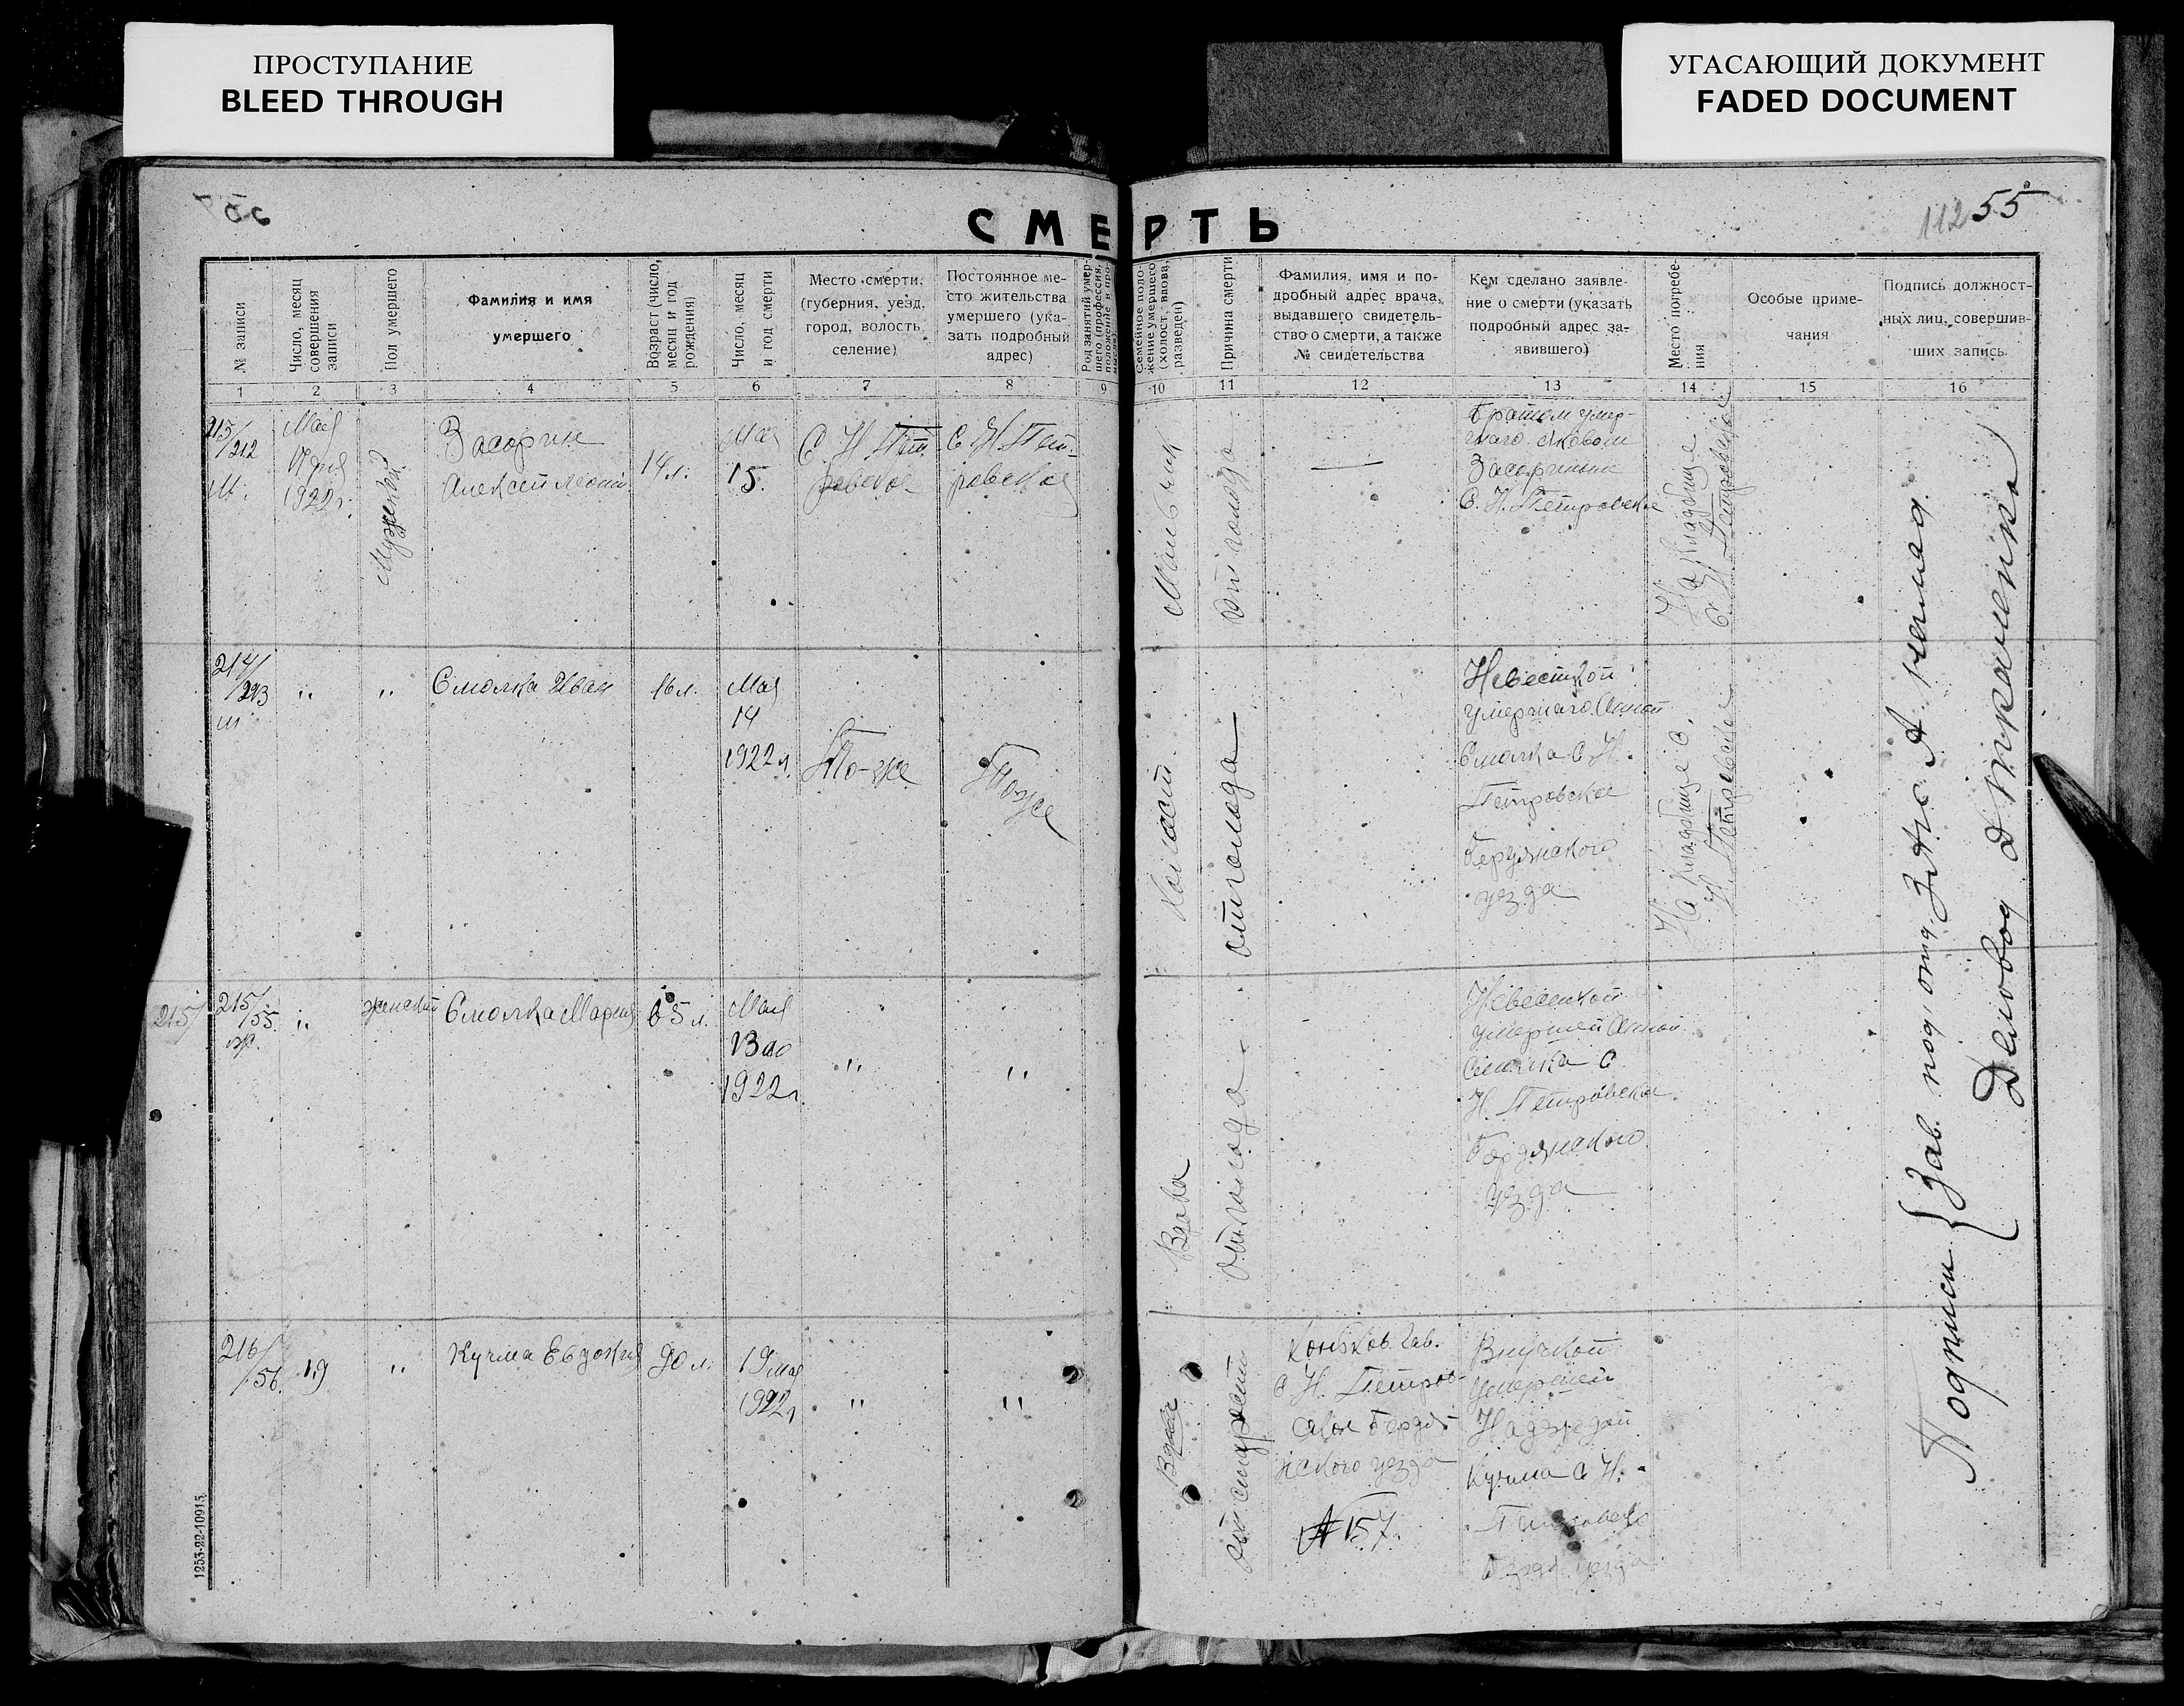 ПРОСТУПАНИЕ
BLEED THROUGH
УГАСАЮЩИЙ ДОКУМЕНТ
FADED DOCUMENT
112 55
СМЕРТЬ
№ записи
Число, месяц
совершения
записи
Пол умершего
Фамилия и имя
умершего
Возраст (число,
месяц и год
рождения)
Число, месяц
и год смерти
Место смерти
(губерния, уезд,
город, волость,
селение)
Постоянное ме-
сто жительства
умершего (ука-
зать подробный
адрес)
Род занятий умер-
шего (профессия,
положение в про-
Семейное поло-
жение умершего
(холост, вдова,
разведен)
Причина смерти
Фамилия, имя и по-
дробный адрес врача,
выдавшего свидетель-
ство о смерти, а также
№ свидетельства
Кем сделано заявле-
ние о смерти (указать
подробный адрес за-
явившего)
Место погребе-
ния
Особые приме-
чания
Подпись должност-
ных лиц, совершив-
ших запись
1 2 3 4 5 6 7 8 9 10 11 12 13 14 15 16
213/
/212
м.
Мая
17 дня
1922 г.
Мужской
Засорин
Алексей
14 л.
Мая
15.
С Н Пет
ровское
С Н Пет
ровское
Мальчик
От голода
Братом умер-
шаго Яковом
Засориным
С. Н. Петровское
На кладбище
С. Н. Петровское
214/
/213
м
"
"
Смолка Иван
16 л.
Мая
14
1922 г.
То-же
Тоже
Холост
от голода
Невесткой
умершаго Анной
Смолка С Н.
Петровское
Бердянского
уезда
На кладбище С.
Н. Петровское
215/
215/
/55.
ж.
"
женский
Смолка Мария
65 л.
Мая
13 го
1922 г.
"
"
Вдова
от голода
Невесткой
умершей Анной
Смолка С
Н. Петровска
Бердянского
уезда
216/
/56.
19
"
Кучма Евдокия
90 л.
19 мая
1922 г
"
"
Вдова
от старости
Коньков Гав.
С Н. Петров-
ское Бердя-
нского уезда
№ 157.
Внучкой
умершей
Надеждой
Кучма С Н.
Петровско
Бердя уезда
Подписи { Зав. под. отд.
Деловод
1253-22-10915